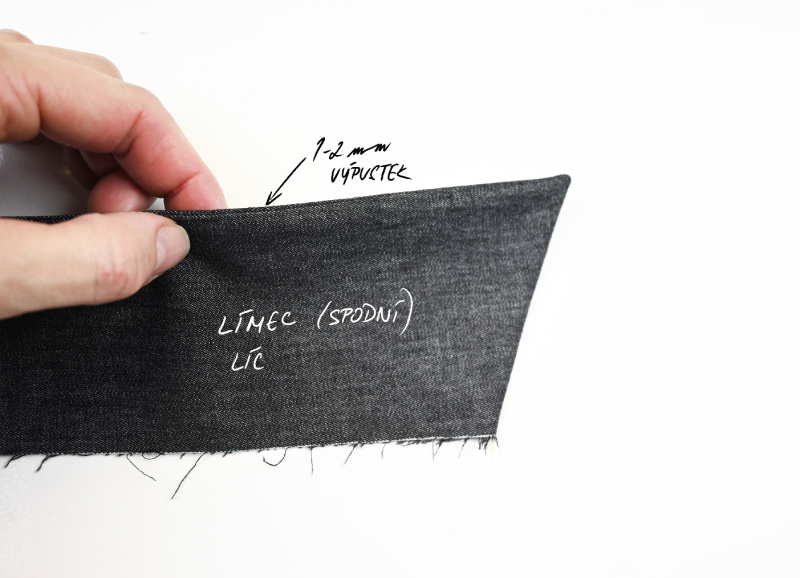 1-2 mm
VÝPUSTEK
LÍMEC (SPODNÍ)
LÍC